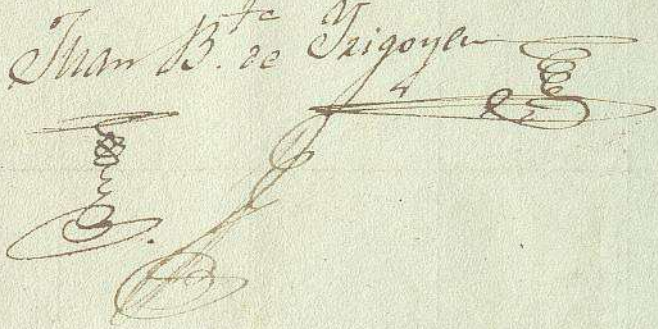 Juan B.te de Yrigoyen